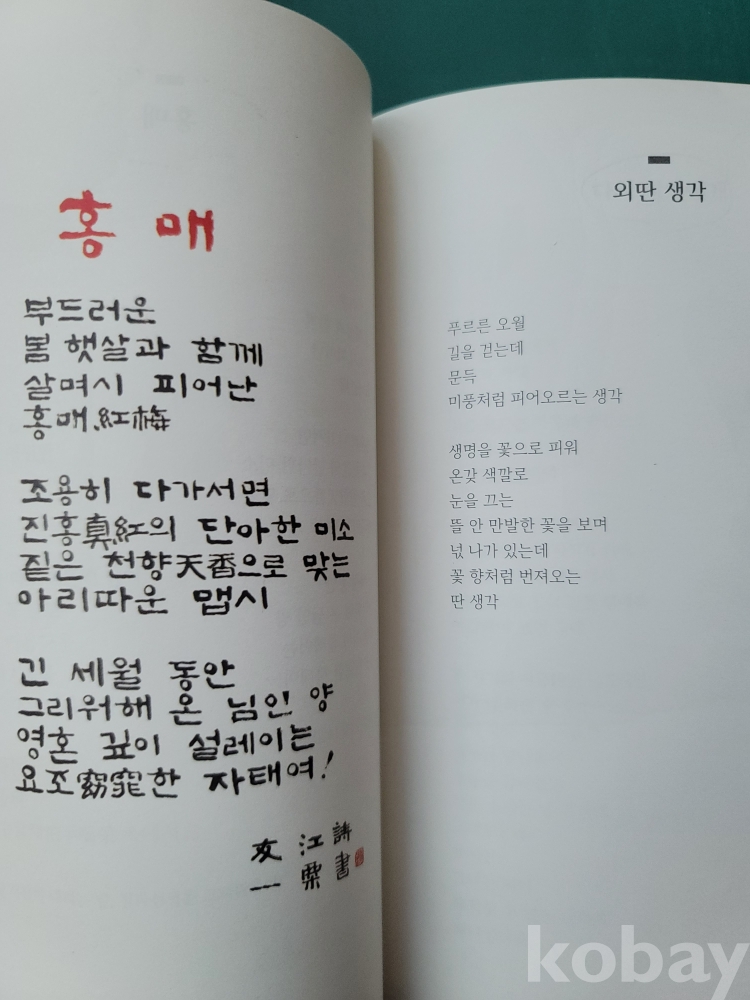 홍 매
부드러운
봄 햇살과 함께
살며시 피어난
홍매.紅梅
조용히 다가서면
진홍眞紅의 단아한 미소
짙은 천향天香으로 맞는
아리따운 맵시
긴 세월 동안
그리워해 온 님인 양
영혼 깊이 설레이는
요조窈窕한 자태여!
江 詩
一 栗 書
외딴 생각
푸르른 오월
길을 걷는데
문득
미풍처럼 피어오르는 생각
생명을 꽃으로 피워
온갖 색깔로
눈을 끄는
뜰 안 만발한 꽃을 보며
넋 나가 있는데
꽃 향처럼 번져오는
딴 생각
kobay